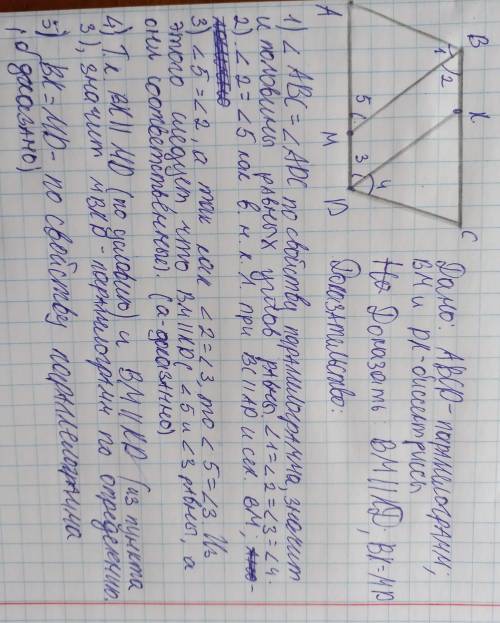 A
B
K
C
M
D
1
2
5
3
4
Дано: ABCD - параллелограмм;
BM и DK - биссектрисы
Доказать: BM || KD, BK = MD
Доказательство:
1) ∠ ABC = ∠ADC по свойству параллелограмма, значит
и половины равных углов равны: ∠1=∠2=∠3=∠4.
2) ∠2 = ∠5 как в.н.к.у. при BC || AD и сек. BM;
3) ∠5 = ∠2, а так как ∠2=∠3, то ∠5=∠3. Из
этого следует что BM || KD( ∠5 и ∠3 равны, а
они соответственные. (а-доказанно)
4) Т.к BK || MD (по условию) и BM || KD (из пункта
3), значит MBKD-параллелограмм по определению.
5) BK=MD - по свойству параллелограмма
(б доказано)